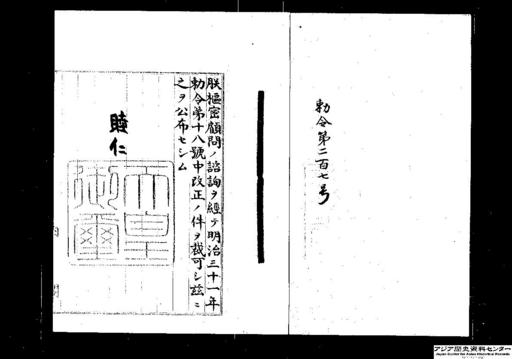 勅令第二百七号
朕樞密顧問ノ諮詢ヲ經テ明治三十一年
勅令第十八號中改正ノ件ヲ裁可シ茲ニ
之ヲ公布セシム
睦仁
天皇
御璽
アジア歴史資料センター
Japan Center for Asian Historical Records